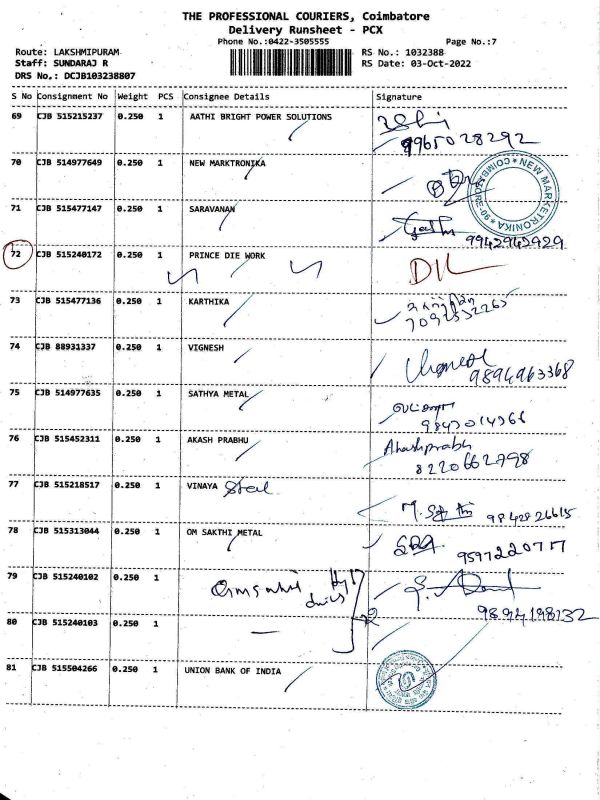 THE PROFESSIONAL COURIERS, Coimbatore
Delivery Runsheet - PCX
Phone No.:0422-3505555
Page No.:7
Route: LAKSHMIPURAM
Staff: SUNDARAJ R
DRS No,: DCJB103238807
RS No.: 1032388
RS Date: 03-Oct-2022
S No Consignment No Weight PCS Consignee Details Signature
69 CJB 515215237 0.250 1 AATHI BRIGHT POWER SOLUTIONS
9965028292
70 CJB 514977649 0.250 1 NEW MARKTRONIKA
NEW MARKETRONIKA
71 CJB 515477147 0.250 1 SARAVANAN
9942942929
72 CJB 515240172 0.250 1 PRINCE DIE WORK DIL
73 CJB 515477136 0.250 1 KARTHIKA
7092532265
74 CJB 88931337 0.250 1 VIGNESH
9894963368
75 CJB 514977635 0.250 1 SATHYA METAL
9843014366
76 CJB 515452311 0.250 1 AKASH PRABHU Akashprabh
8220662798
77 CJB 515218517 0.250 1 VINAYA Steel
9842826615
78 CJB 515313044 0.250 1 OM SAKTHI METAL
9597220717
79 CJB 515240102 0.250 1
9894198132
80 CJB 515240103 0.250 1
81 CJB 515504266 0.250 1 UNION BANK OF INDIA